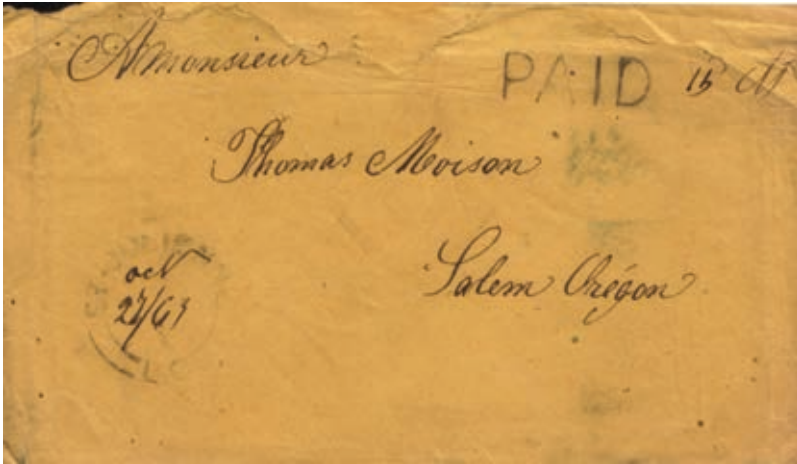 A monsieur
PAID 15
Thomas Moison
Salem Orégon
oct
27/63
L.C.